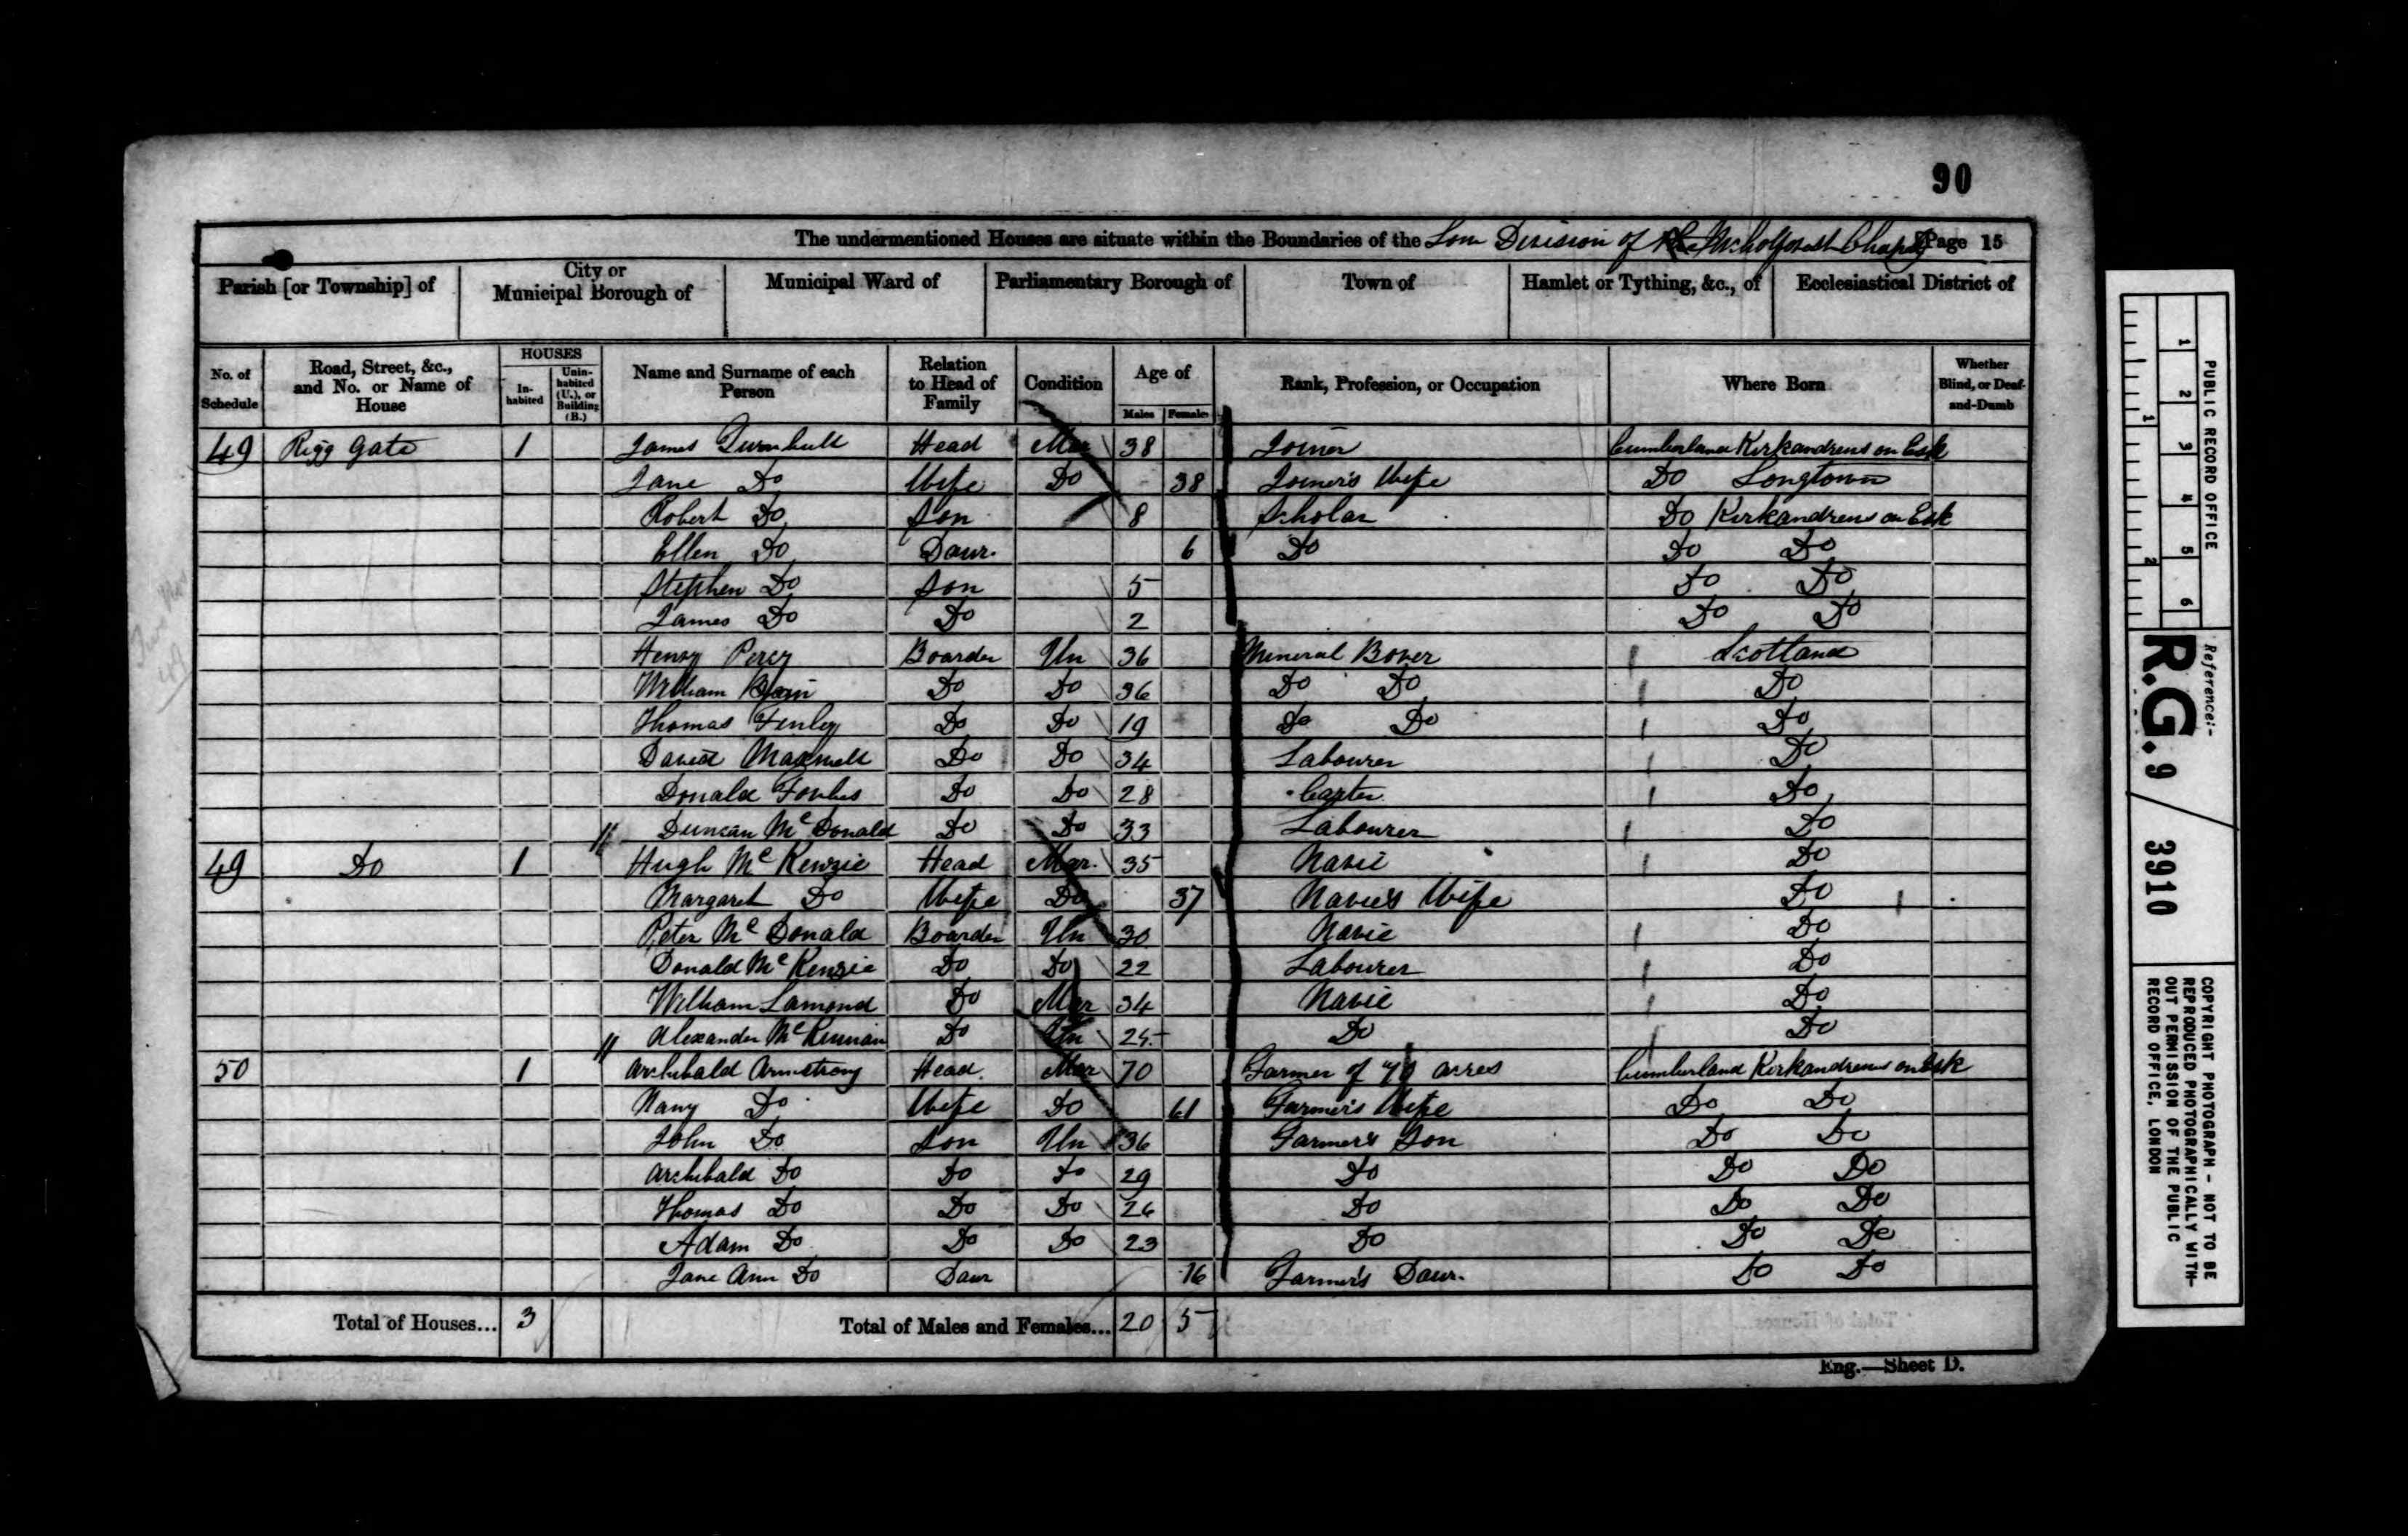 90
The undermentioned Houses are situate within the Boundaries of the Division of Page 15
Parish [or Township] of City or Municipal Borough of Municipal Ward of Parliamentary Borough of Town of Hamlet or Tything, &c., of Ecclesiastical District of
No. of Schedule Road, Street, &c., and No. or Name of House HOUSES In-habited Unin-habited (U.), or Building (B.) Name and Surname of each Person Relation to Head of Family Condition Age of Males Females Rank, Profession, or Occupation Where Born Whether Blind, or Deaf-and-Dumb
49 Rigg Gate 1 James Turnbull Head Mar 38 Joiner Cumberland Kirkandrews on Esk
Jane Do Wife Do 38 Joiner's Wife Do Longtown
Robert Do Son 8 Scholar Do Kirkandrews on Esk
Ellen Do Daur. 6 Do Do Do
Stephen Do Son 5 Do Do
James Do Do 2 Do Do
Henry Percy Boarder Un 36 Mineral Borer Scotland
William Do Do 36 Do Do Do
Thomas Fenley Do Do 19 Do Do Do
David Maxwell Do Do 34 Labourer Do
Donald Forbes Do Do 28 Carter Do
Duncan Mc Donald Do Do 33 Labourer Do
49 Do 1 Hugh Mc Kenzie Head Mar. 35 Navie Do
Margaret Do Wife Do 37 Navie's Wife Do
Peter Mc Donald Boarder Un 30 Navie Do
Donald Mc Kenzie Do Do 22 Labourer Do
William Lamond Do Mar 34 Navie Do
Alexander Do Un 25 Do Do
50 1 Archibald Armstrong Head Mar 70 Farmer of acres Cumberland Kirkandrews on Esk
Nany Do Wife Do 61 Farmer's Wife Do Do
John Do Son Un 36 Farmer's Son Do Do
Archibald Do Do Do 29 Do Do Do
Thomas Do Do Do 26 Do Do Do
Adam Do Do Do 23 Do Do Do
Jane Ann Do Daur 16 Farmer's Daur. Do Do
Total of Houses... 3 Total of Males and Females... 20 5
Eng.—Sheet D.
1 2 3 4 5 6
1 2
PUBLIC RECORD OFFICE
Reference:-
R.G. 9 / 3910
COPYRIGHT PHOTOGRAPH - NOT TO BE
REPRODUCED PHOTOGRAPHICALLY WITH-
OUT PERMISSION OF THE PUBLIC
RECORD OFFICE, LONDON